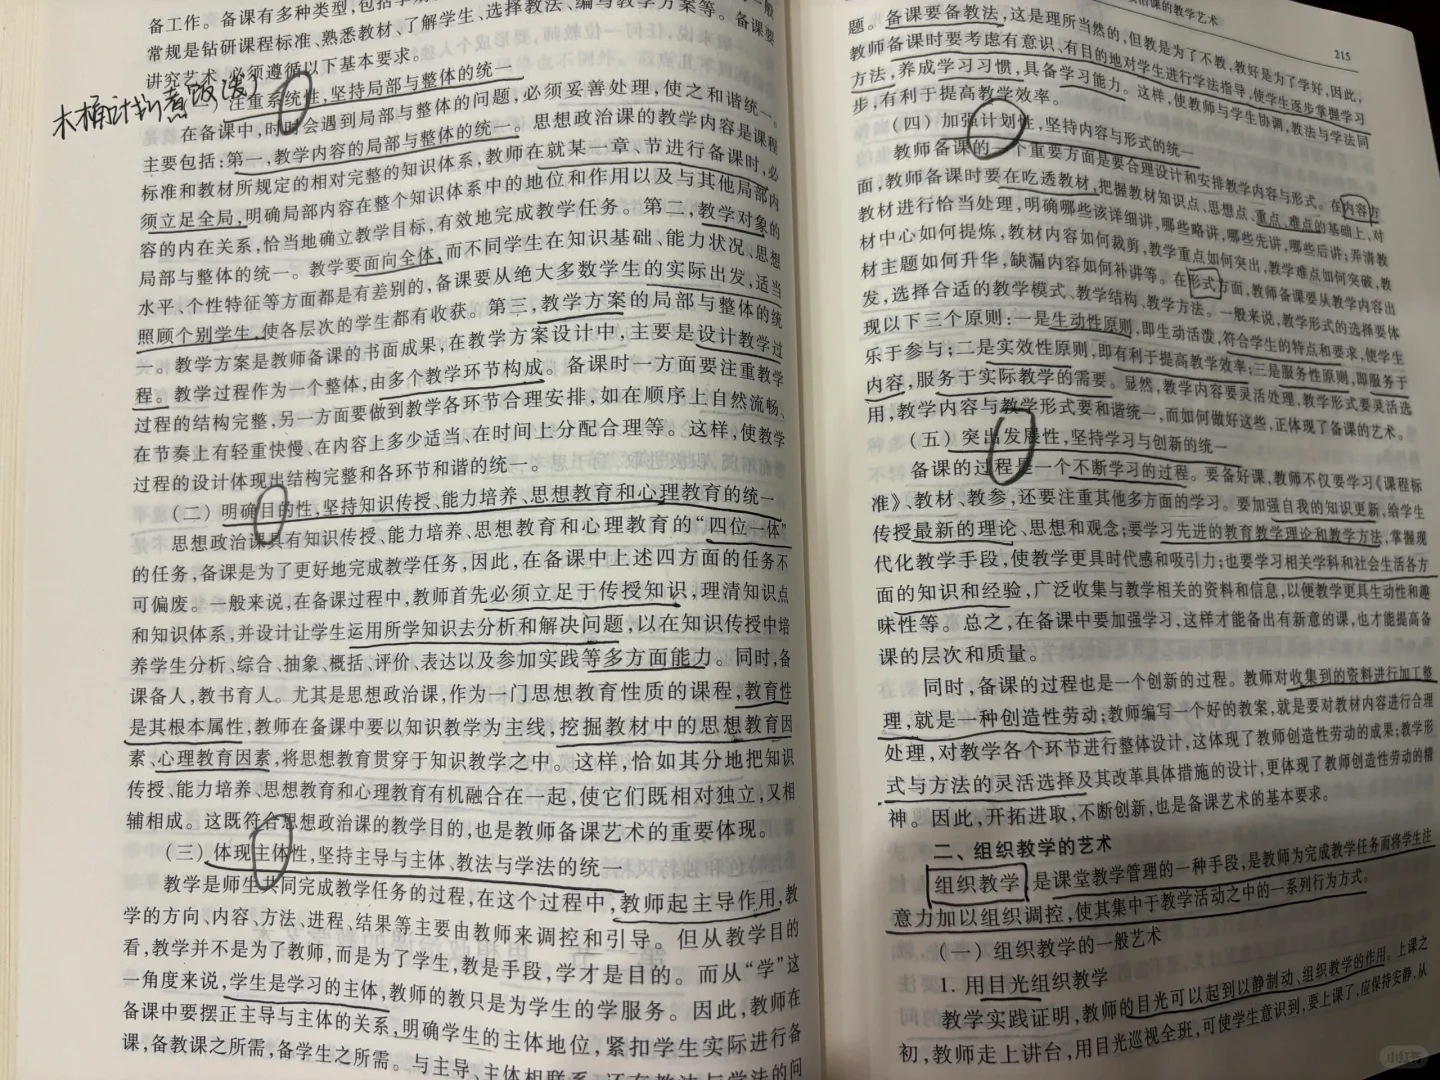 备工作。备课有多种类型,包括学期
常规是钻研课程标准、熟悉教材、了解学生、选择教法、编写教学方案等。备课要
讲究艺术,必须遵循以下基本要求。
木桶计划煮饭
注重系统性,坚持局部与整体的统一
在备课中,时时会遇到局部与整体的问题,必须妥善处理,使之和谐统一。
主要包括:第一,教学内容的局部与整体的统一。思想政治课的教学内容是课程
标准和教材所规定的相对完整的知识体系,教师在就某一章、节进行备课时,必
须立足全局,明确局部内容在整个知识体系中的地位和作用以及与其他局部内
容的内在关系,恰当地确立教学目标,有效地完成教学任务。第二,教学对象的
局部与整体的统一。教学要面向全体,而不同学生在知识基础、能力状况、思想
水平、个性特征等方面都是有差别的,备课要从绝大多数学生的实际出发,适当
照顾个别学生,使各层次的学生都有收获。第三,教学方案的局部与整体的统
一。教学方案是教师备课的书面成果,在教学方案设计中,主要是设计教学过
程。教学过程作为一个整体,由多个教学环节构成。备课时一方面要注重教学
过程的结构完整,另一方面要做到教学各环节合理安排,如在顺序上自然流畅、
在节奏上有轻重快慢、在内容上多少适当、在时间上分配合理等。这样,使教学
过程的设计体现出结构完整和各环节和谐的统一。
(二)明确目的性,坚持知识传授、能力培养、思想教育和心理教育的统一
思想政治课具有知识传授、能力培养、思想教育和心理教育的“四位一体”
的任务,备课是为了更好地完成教学任务,因此,在备课中上述四方面的任务不
可偏废。一般来说,在备课过程中,教师首先必须立足于传授知识,理清知识点
和知识体系,并设计让学生运用所学知识去分析和解决问题,以在知识传授中培
养学生分析、综合、抽象、概括、评价、表达以及参加实践等多方面能力。同时,备
课备人,教书育人。尤其是思想政治课,作为一门思想教育性质的课程,教育性
是其根本属性,教师在备课中要以知识教学为主线,挖掘教材中的思想教育因
素、心理教育因素,将思想教育贯穿于知识教学之中。这样,恰如其分地把知识
传授、能力培养、思想教育和心理教育有机融合在一起,使它们既相对独立,又相
辅相成。这既符合思想政治课的教学目的,也是教师备课艺术的重要体现。
(三)体现主体性,坚持主导与主体、教法与学法的统一
教学是师生共同完成教学任务的过程,在这个过程中,教师起主导作用,教
学的方向、内容、方法、进程、结果等主要由教师来调控和引导。但从教学目的
看,教学并不是为了教师,而是为了学生,教是手段,学才是目的。而从“学”这
一角度来说,学生是学习的主体,教师的教只是为学生的学服务。因此,教师在
备课中要摆正主导与主体的关系,明确学生的主体地位,紧扣学生实际进行备
课,备教课之所需,备学生之所需。与主导、主体相联系,还有教法与学法的问
课的教学艺术
215
题。备课要备教法,这是理所当然的,但教是为了不教,教好是为了学好,因此,
教师备课时要考虑有意识、有目的地对学生进行学法指导,使学生逐步掌握学习
方法,养成学习习惯,具备学习能力。这样,使教师与学生协调,教法与学法同
步,有利于提高教学效率。
(四)加强计划性,坚持内容与形式的统一
教师备课的一个重要方面是要合理设计和安排教学内容与形式。在内容方
面,教师备课时要在吃透教材,把握教材知识点、思想点、重点、难点的基础上,对
教材进行恰当处理,明确哪些该详细讲,哪些略讲,哪些先讲,哪些后讲;弄清教
材中心如何提炼,教材内容如何裁剪,教学重点如何突出,教学难点如何突破,教
材主题如何升华,缺漏内容如何补讲等。在形式方面,教师备课要从教学内容出
发,选择合适的教学模式、教学结构、教学方法。一般来说,教学形式的选择要体
现以下三个原则:一是生动性原则,即生动活泼,符合学生的特点和要求,使学生
乐于参与;二是实效性原则,即有利于提高教学效率;三是服务性原则,即服务于
内容,服务于实际教学的需要。显然,教学内容要灵活处理,教学形式要灵活选
用,教学内容与教学形式要和谐统一,而如何做好这些,正体现了备课的艺术。
(五)突出发展性,坚持学习与创新的统一
备课的过程是一个不断学习的过程。要备好课,教师不仅要学习《课程标
准》、教材、教参,还要注重其他多方面的学习。要加强自我的知识更新,给学生
传授最新的理论、思想和观念;要学习先进的教育教学理论和教学方法,掌握现
代化教学手段,使教学更具时代感和吸引力;也要学习相关学科和社会生活各方
面的知识和经验,广泛收集与教学相关的资料和信息,以便教学更具生动性和趣
味性等。总之,在备课中要加强学习,这样才能备出有新意的课,也才能提高备
课的层次和质量。
同时,备课的过程也是一个创新的过程。教师对收集到的资料进行加工整
理,就是一种创造性劳动;教师编写一个好的教案,就是要对教材内容进行合理
处理,对教学各个环节进行整体设计,这体现了教师创造性劳动的成果;教学形
式与方法的灵活选择及其改革具体措施的设计,更体现了教师创造性劳动的精
神。因此,开拓进取,不断创新,也是备课艺术的基本要求。
二、组织教学的艺术
组织教学,是课堂教学管理的一种手段,是教师为完成教学任务而将学生注
意力加以组织调控,使其集中于教学活动之中的一系列行为方式。
(一)组织教学的一般艺术
1. 用目光组织教学
教学实践证明,教师的目光可以起到以静制动、组织教学的作用。上课之
初,教师走上讲台,用目光巡视全班,可使学生意识到,要上课了,应保持安静,从
小红书